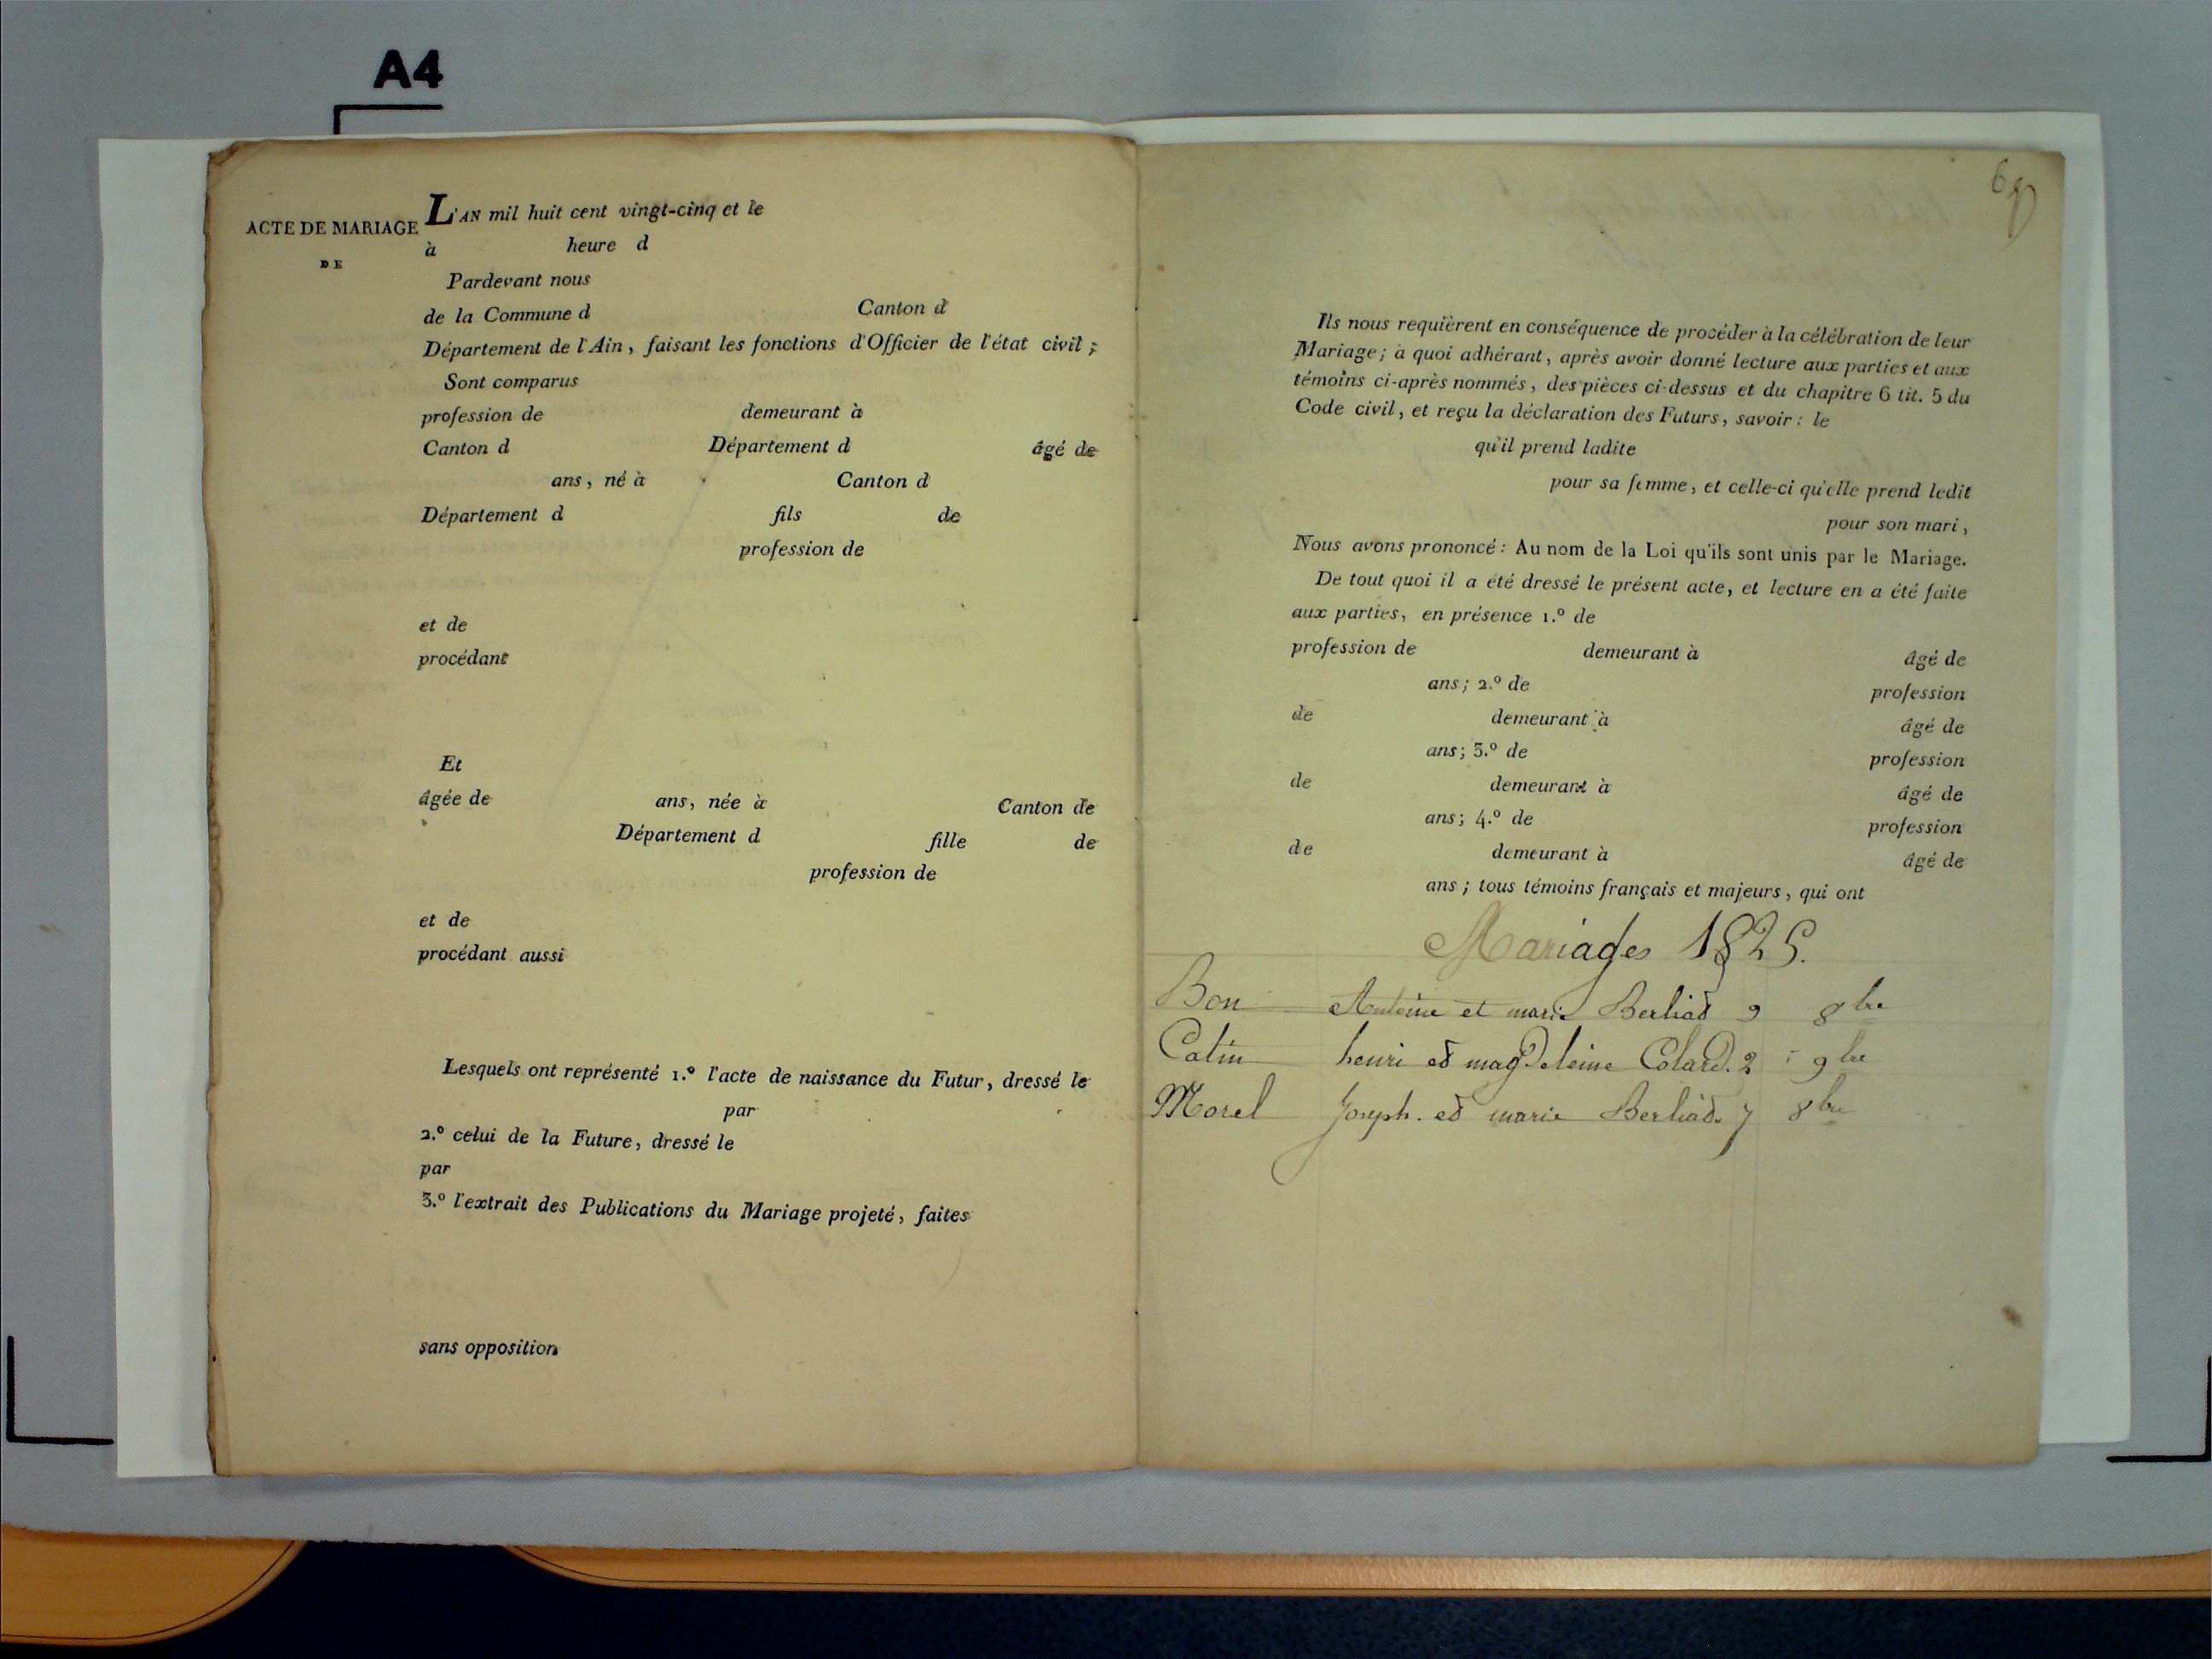 A4
L'AN mil huit cent vingt-cinq et le
ACTE DE MARIAGE
DE
à heure d
Pardevant nous
de la Commune d Canton d
Département de l'Ain, faisant les fonctions d'Officier de l'état civil ;
Sont comparus
profession de demeurant à
Canton d Département d âgé de
ans, né à Canton d
Département d fils de
profession de
et de
procédant
Et
âgée de ans, née à Canton de
Département d fille de
profession de
et de
procédant aussi
Lesquels ont représenté 1.º l'acte de naissance du Futur, dressé le
par
2.º celui de la Future, dressé le
par
3.º l'extrait des Publications du Mariage projeté, faites
sans opposition
6
Ils nous requièrent en conséquence de procéder à la célébration de leur
Mariage ; à quoi adhérant, après avoir donné lecture aux parties et aux
témoins ci-après nommés, des pièces ci-dessus et du chapitre 6 tit. 5 du
Code civil, et reçu la déclaration des Futurs, savoir : le
qu'il prend ladite
pour sa femme, et celle-ci qu'elle prend ledit
pour son mari,
Nous avons prononcé : Au nom de la Loi qu'ils sont unis par le Mariage.
De tout quoi il a été dressé le présent acte, et lecture en a été faite
aux parties, en présence 1.º de
profession de demeurant à âgé de
ans ; 2.º de profession
de demeurant à âgé de
ans ; 3.º de profession
de demeurant à âgé de
ans ; 4.º de profession
de demeurant à âgé de
ans ; tous témoins français et majeurs, qui ont
Mariages 1825.
Bon Antoine et marie Berliad 9 8bre
Catin henri et magdeleine Colard. 2 9bre
Morel Joseph. et marie Berliad. 7 8bre